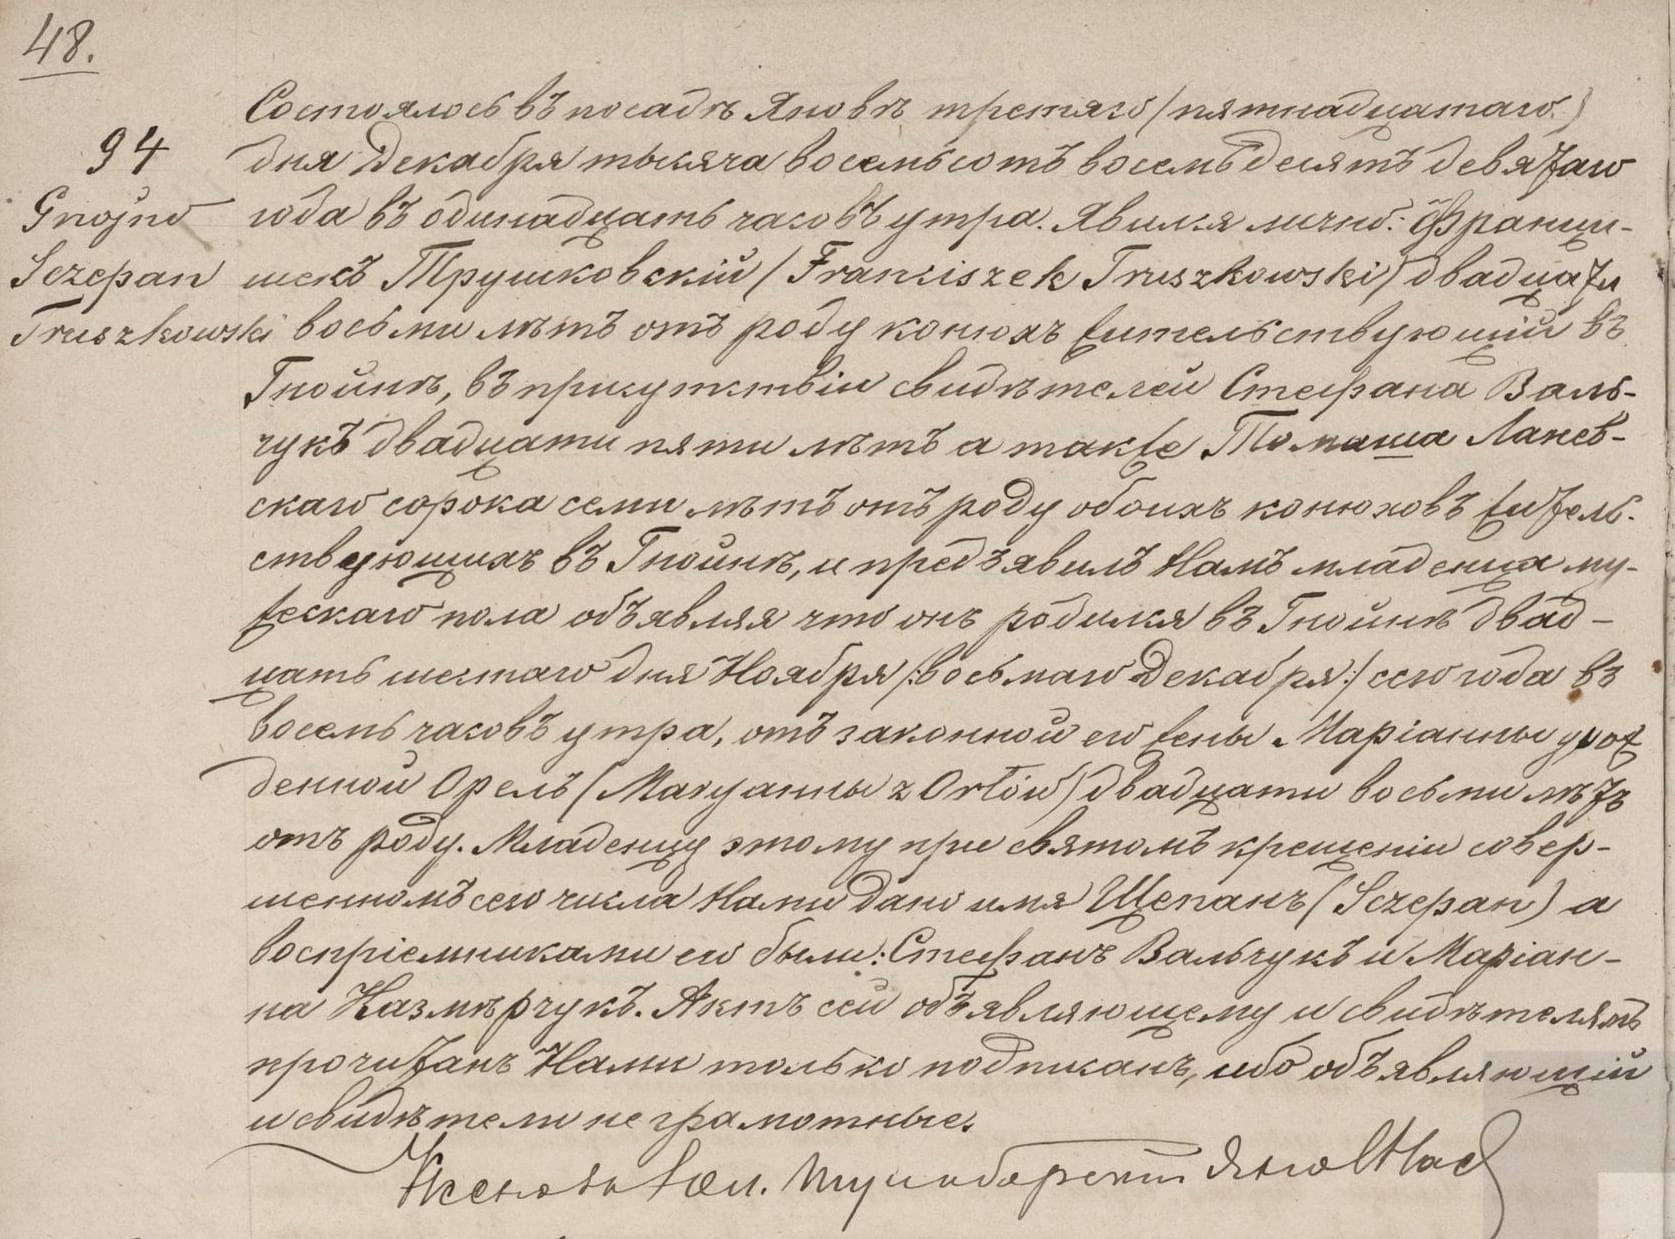 48.
Состоялось въ посадѣ Яновѣ третяго /пятнадцатаго/
94
дня Декабря тысяча восемьсотъ восемьдесятъ девятаго
Gnojno
года въ одинадцать часовъ утра. Явился лично: Францы-
Sczepan
шекъ Трушковскій (Franciszek Truszkowski) двадцати
Truszkowski
восьми лѣтъ отъ роду конюхъ жительствующій въ
Гнойнѣ, въ присутствіи свидѣтелей Стефана Валь-
чукъ двадцати пяти лѣтъ а также Томаша
скаго сорока семи лѣтъ отъ роду обоихъ конюховъ жытель-
ствующихъ въ Гнойнѣ, и предъявилъ Намъ младенца му-
жескаго пола объявляя что онъ родился въ Гнойнѣ двад-
цать шестаго дня Ноября /:восьмаго Декабря:/ сего года въ
восемь часовъ утра, отъ законной его жены Маріанны урож
денной Орелъ (Маryанны z Orłów) двадцати восьми лѣтъ
отъ роду. Младенцу этому при святомъ крещеніи совер-
шенномъ сего числа Нами дано имя Щепанъ (Sczepan) а
воспріемниками его были: Стефанъ Вальчукъ и Маріан-
на Казмѣрчукъ. Актъ сей объявляющему и свидѣтелямъ
прочитанъ Нами только подписанъ, ибо объявляющій
и свидѣтели неграмотные.